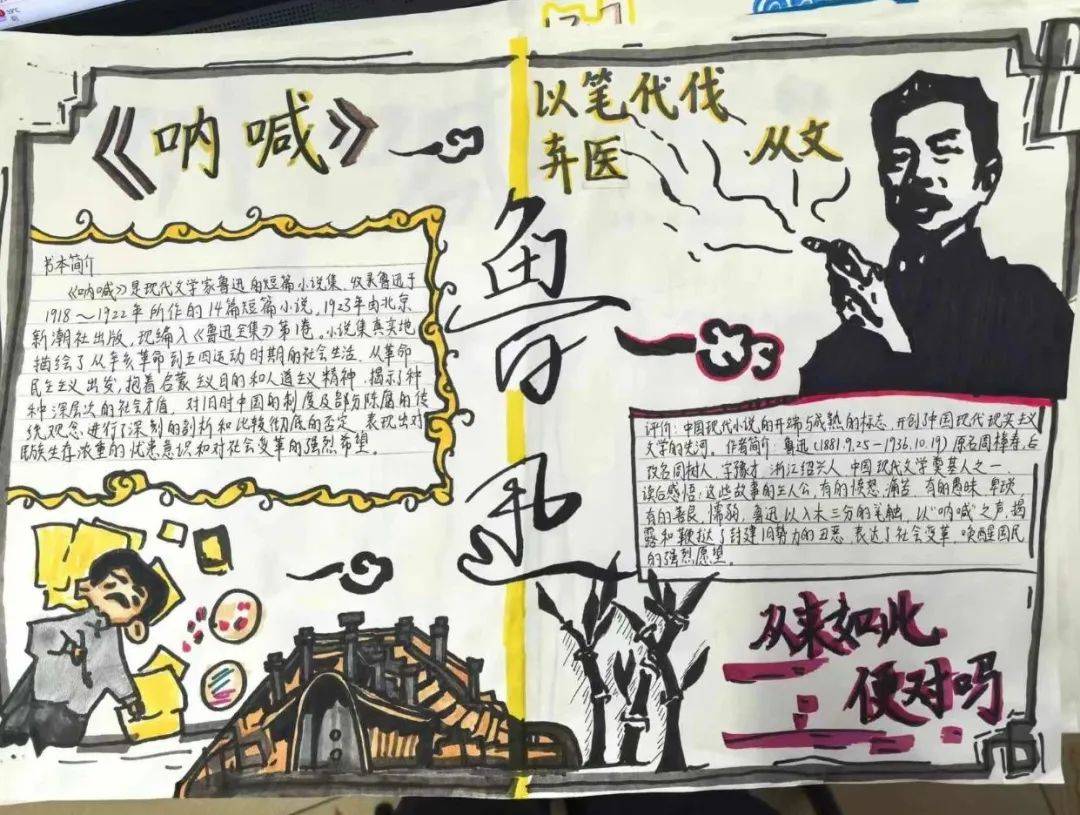 《呐喊》
书本简介
《呐喊》是现代文学家鲁迅的短篇小说集,收录鲁迅于
1918～1922年所作的14篇短篇小说,1923年由北京
新潮社出版,现编入《鲁迅全集》第1卷。小说集真实地
描绘了从辛亥革命到五四运动时期的社会生活,从革命
民主主义出发,抱着启蒙主义目的和人道主义精神,揭示了种
种深层次的社会矛盾,对旧时中国的制度及部分陈腐的传
统观念进行了深刻的剖析和比较彻底的否定,表现出对
民族生存浓重的忧患意识和对社会变革的强烈希望。
鲁迅
以笔代伐
弃医
从文
评价:中国现代小说的开端与成熟的标志,开创了中国现代现实主义
文学的先河。作者简介:鲁迅(1881.9.25-1936.10.19)原名周樟寿,后
改名周树人,字豫才,浙江绍兴人,中国现代文学奠基人之一。
读后感悟:这些故事的主人公,有的愤怒、痛苦,有的愚昧、卑琐,
有的善良、懦弱,鲁迅以入木三分的笔触,以“呐喊”之声,揭
露和鞭挞了封建旧势力的丑恶,表达了社会变革,唤醒国民
的强烈愿望。
从来如此
便对吗